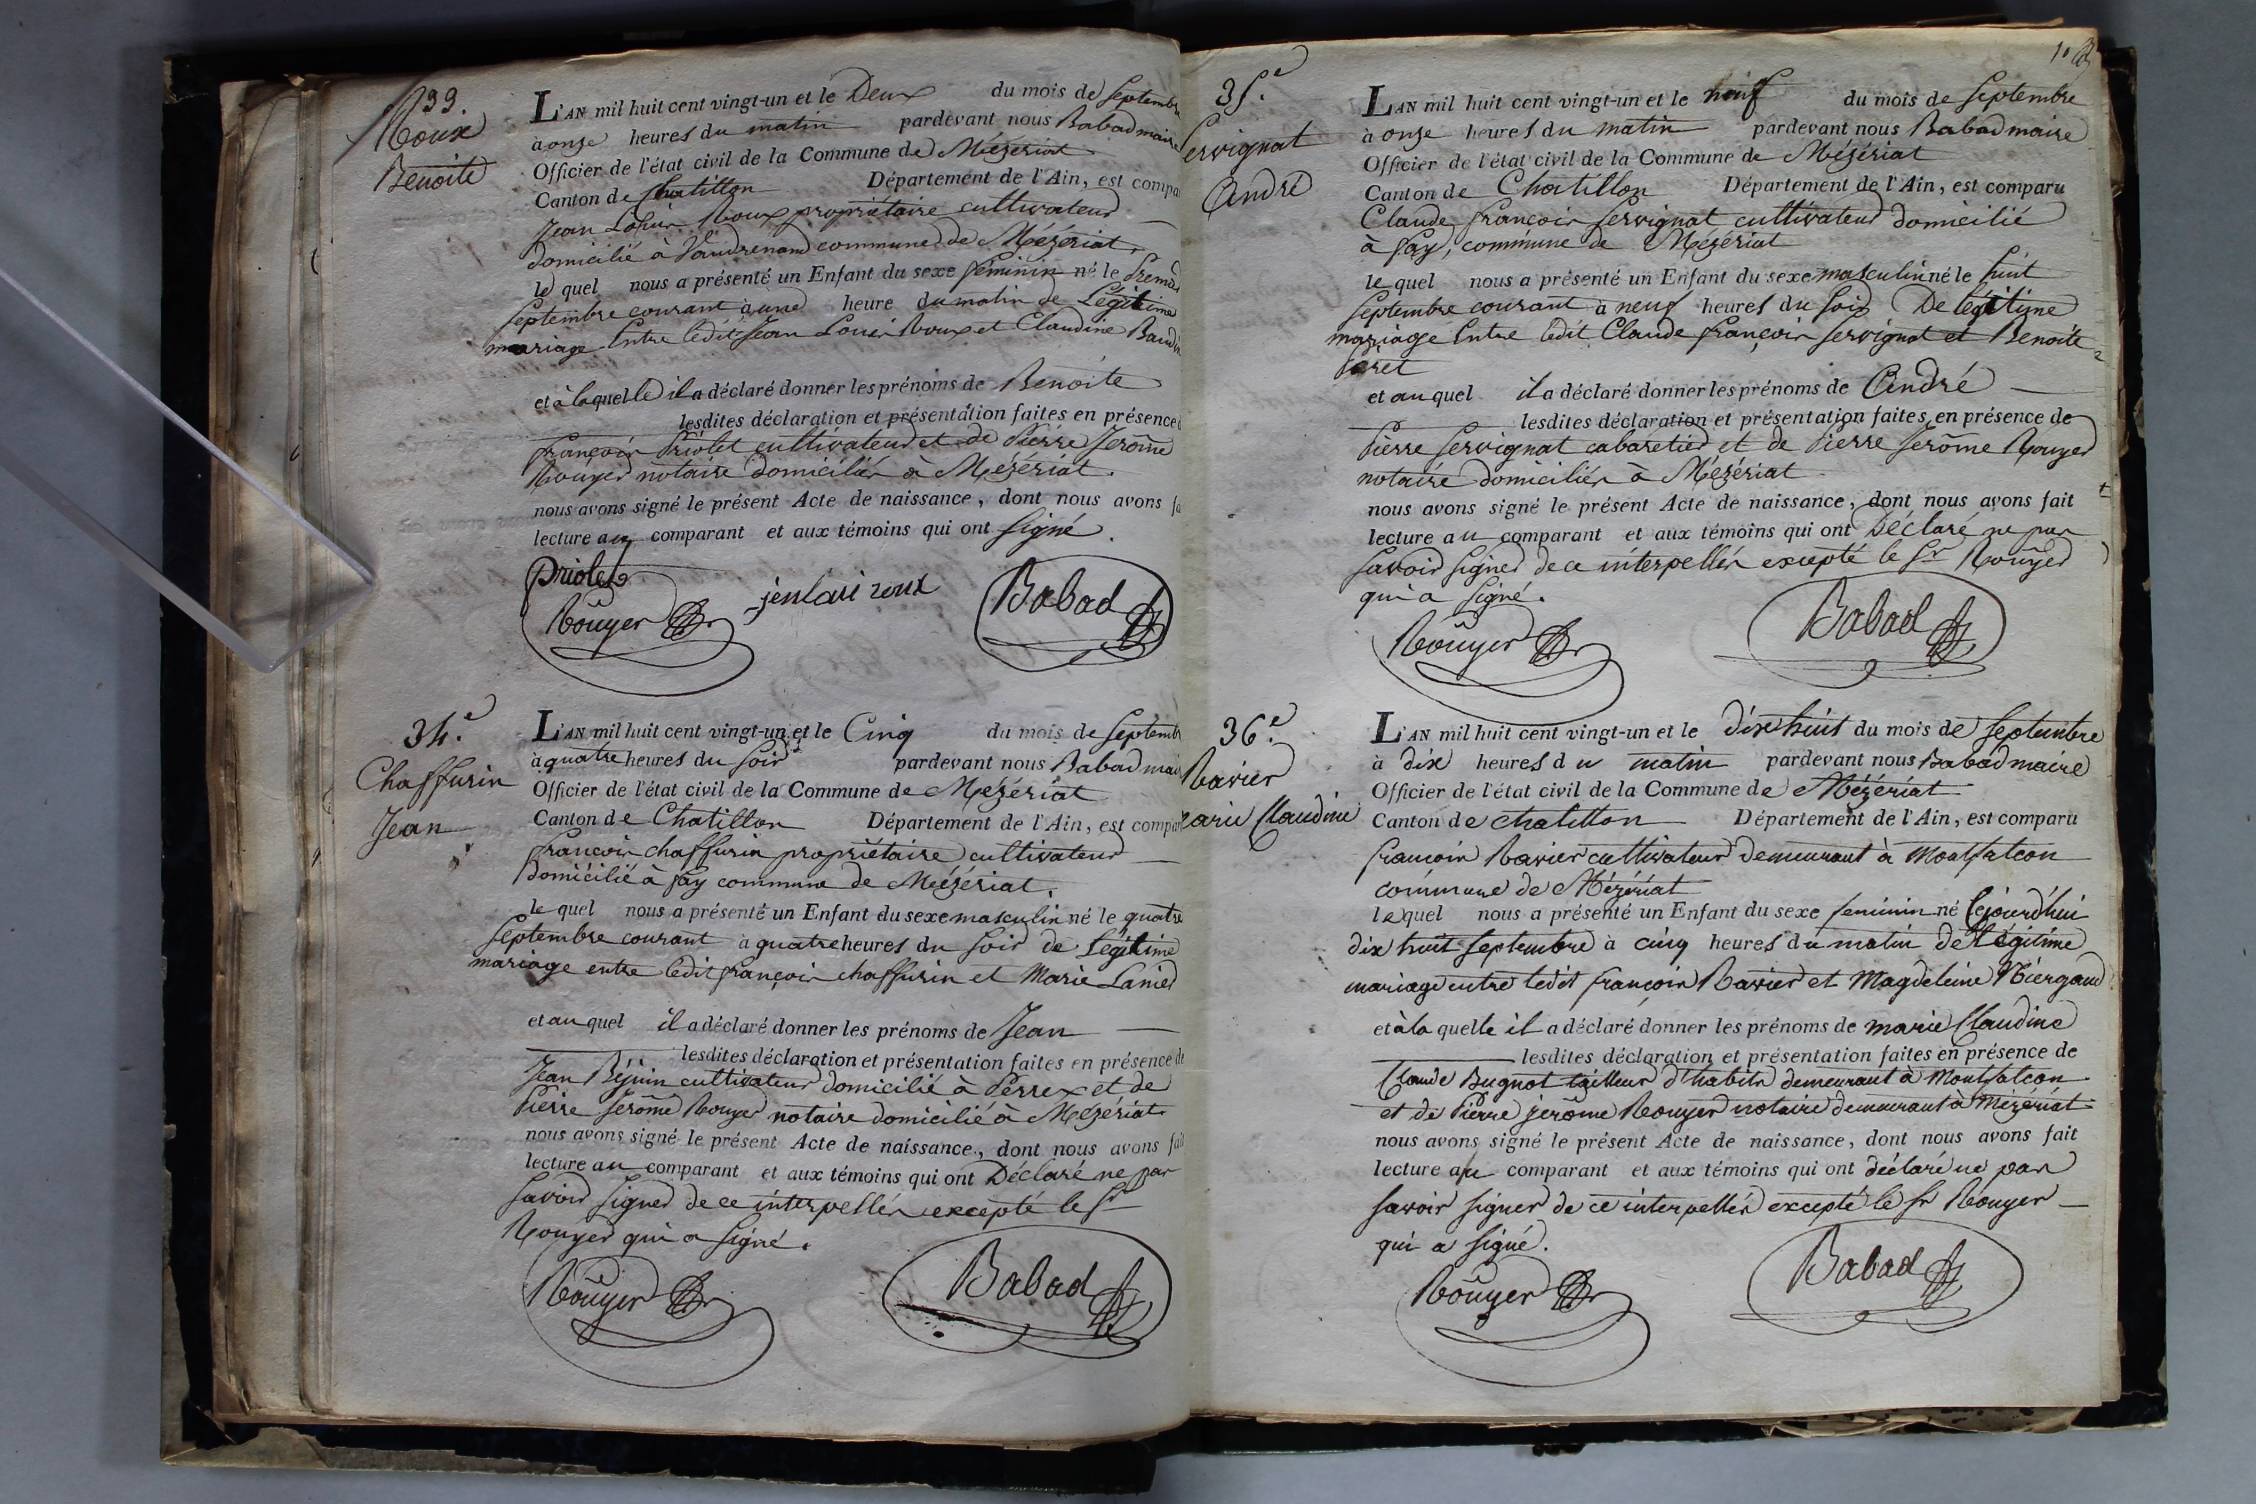 33.
Roux
Benoite
L'AN mil huit cent vingt-un et le Deux du mois de Septembre
à onze heures du matin pardevant nous Babad maire
Officier de l'état civil de la Commune de Mézériat
Canton de Chatillon Département de l'Ain, est compa
Jean Louis Roux propriétaire cultivateur
domicilié à Vaudrenand commune de Mézériat.
le quel nous a présenté un Enfant du sexe féminin né le Premier
Septembre courant à une heure du matin de Légitime
mariage Entre ledit Jean Louis Roux et Claudine Baudin
et à laquelle il a déclaré donner les prénoms de Benoite
lesdites déclaration et présentation faites en présence d
françois Priolet cultivateur et de Pierre Jerome
Rouyer notaire domiciliés à Mézériat.
nous avons signé le présent Acte de naissance, dont nous avons fa
lecture au comparant et aux témoins qui ont signé.
Priolet
Rouyer
jenlaui roux
Babad
34.e
Chaffurin
Jean
L'AN mil huit cent vingt-un et le Cinq du mois de Septemb
à quatre heures du soir pardevant nous Babad mai
Officier de l'état civil de la Commune de Mézériat
Canton de Chatillon Département de l'Ain, est compar
françois chaffurin propriétaire cultivateur
domicilié à fay commune de Mézériat.
le quel nous a présenté un Enfant du sexe masculin né le quatre
Septembre courant à quatre heures du soir de Légitime
mariage entre ledit françois chaffurin et Marie Lanier
et au quel il a déclaré donner les prénoms de Jean
lesdites déclaration et présentation faites en présence de
Jean Béjuin cultivateur domicilié à Perrex et de
Pierre Jerôme Rouyer notaire domicilié à Mézériat
nous avons signé le présent Acte de naissance, dont nous avons fait
lecture au comparant et aux témoins qui ont Déclaré ne pas
savoir signer de ce interpellés excepté le Sr
Rouyer qui a signé.
Rouyer
Babad
35.e
Servignat
André
L'AN mil huit cent vingt-un et le neuf du mois de Septembre
à onze heures du matin pardevant nous Babad maire
Officier de l'état civil de la Commune de Mézériat
Canton de Chatillon Département de l'Ain, est comparu
Claude françois Servignat cultivateur domicilié
à fay, commune de Mézériat
le quel nous a présenté un Enfant du sexe masculin né le huit
Septembre courant à neuf heures du soir De légitime
mariage Entre ledit Claude françois Servignat et Benoite
et au quel il a déclaré donner les prénoms de André
lesdites déclaration et présentation faites en présence de
Pierre Servignat cabaretier et de Pierre Jerôme Rouyer
notaire domiciliés à Mézériat
nous avons signé le présent Acte de naissance, dont nous avons fait
lecture au comparant et aux témoins qui ont Déclaré ne pas
savoir signer de ce interpellés excepté le Sr Rouyer
qui a signé.
Rouyer
Babad
36.e
Ravier
marie Claudine
L'AN mil huit cent vingt-un et le dix huit du mois de Septembre
à dix heures du matin pardevant nous Babad maire
Officier de l'état civil de la Commune de Mézériat
Canton de chatillon Département de l'Ain, est comparu
françois Ravier cultivateur demeurant à Montfalcon
commune de Mézériat
le quel nous a présenté un Enfant du sexe feminin né Cejourd'hui
dix huit Septembre à cinq heures du matin de Légitime
mariage entre ledit françois Ravier et Magdeleine
et à la quelle il a déclaré donner les prénoms de marie Claudine
lesdites déclaration et présentation faites en présence de
Claude Bugnot tailleur d'habits demeurant à Montfalcon
et de Pierre jerôme Rouyer notaire demeurant à Mézériat
nous avons signé le présent Acte de naissance, dont nous avons fait
lecture au comparant et aux témoins qui ont déclaré ne pas
savoir signer de ce interpellés excepté le Sr Rouyer
qui a signé.
Rouyer
Babad